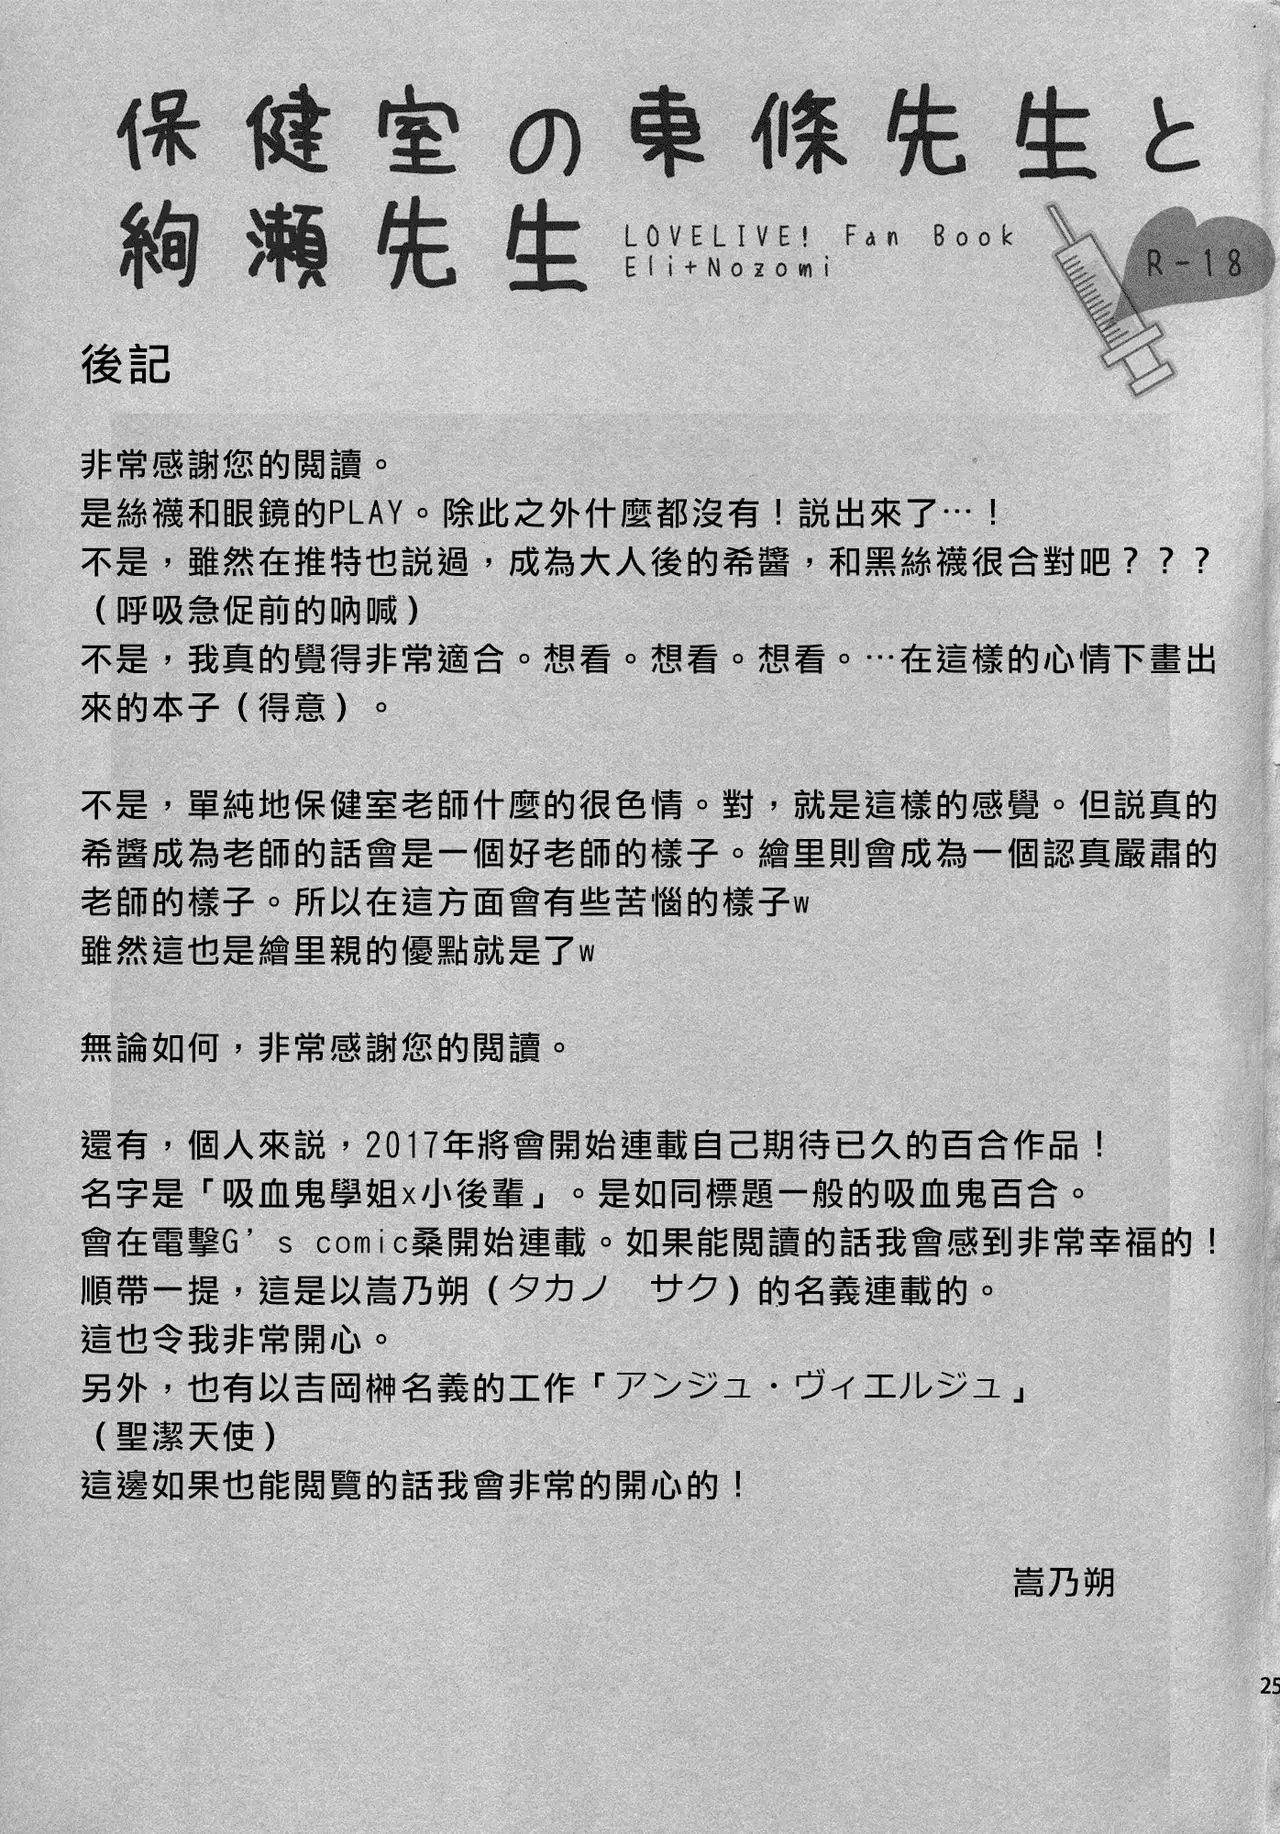 保健室の東條先生と
絢瀬先生
LOVELIVE! Fan Book
Eli+Nozomi
R-18
後記
非常感謝您的閱讀。
是絲襪和眼鏡的PLAY。除此之外什麼都沒有！說出來了…！
不是，雖然在推特也說過，成為大人後的希醬，和黑絲襪很合對吧？？？
（呼吸急促前的吶喊）
不是，我真的覺得非常適合。想看。想看。想看。…在這樣的心情下畫出
來的本子（得意）。
不是，單純地保健室老師什麼的很色情。對，就是這樣的感覺。但說真的
希醬成為老師的話會是一個好老師的樣子。繪里則會成為一個認真嚴肅的
老師的樣子。所以在這方面會有些苦惱的樣子w
雖然這也是繪里親的優點就是了w
無論如何，非常感謝您的閱讀。
還有，個人來說，2017年將會開始連載自己期待已久的百合作品！
名字是「吸血鬼學姐x小後輩」。是如同標題一般的吸血鬼百合。
會在電擊G’s comic桑開始連載。如果能閱讀的話我會感到非常幸福的！
順帶一提，這是以嵩乃朔（タカノ　サク）的名義連載的。
這也令我非常開心。
另外，也有以吉岡榊名義的工作「アンジュ・ヴィエルジュ」
（聖潔天使）
這邊如果也能閱覽的話我會非常的開心的！
嵩乃朔
25